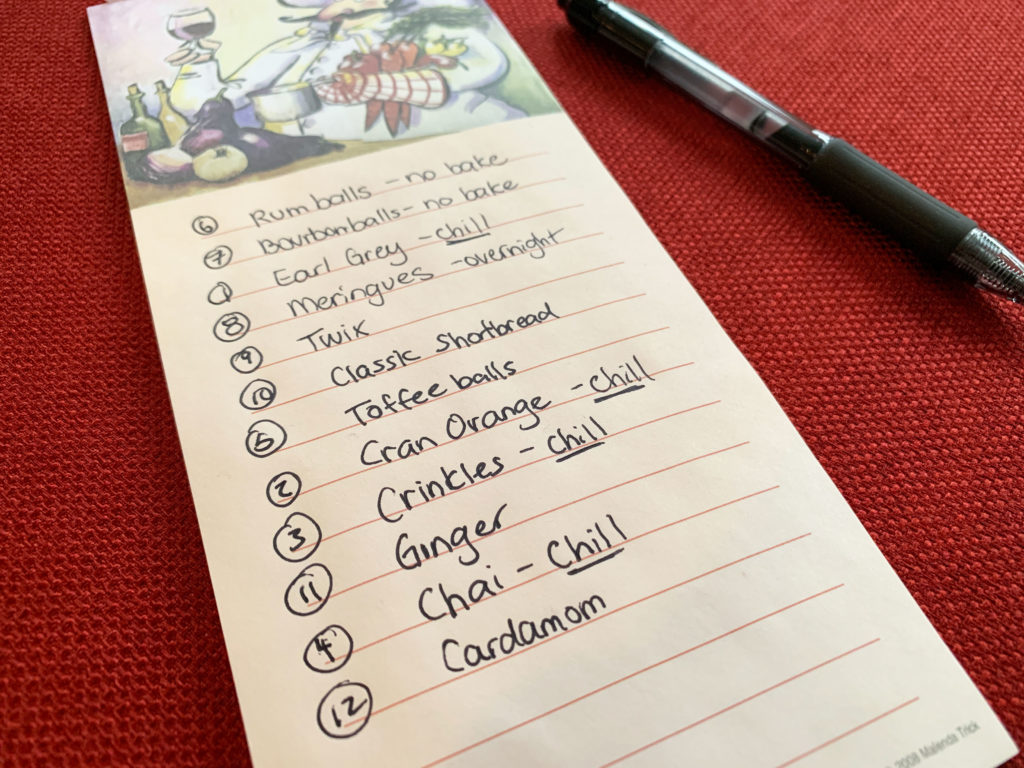 6 Rum balls - no bake
7 Bourbon balls - no bake
1 Earl Grey - chill
8 Meringues - overnight
9 Twix
10 Classic Shortbread
5 Toffee balls
2 Cran Orange - chill
3 Crinkles - chill
11 Ginger
4 Chai - Chill
12 Cardamom
2008 Malenda Trick